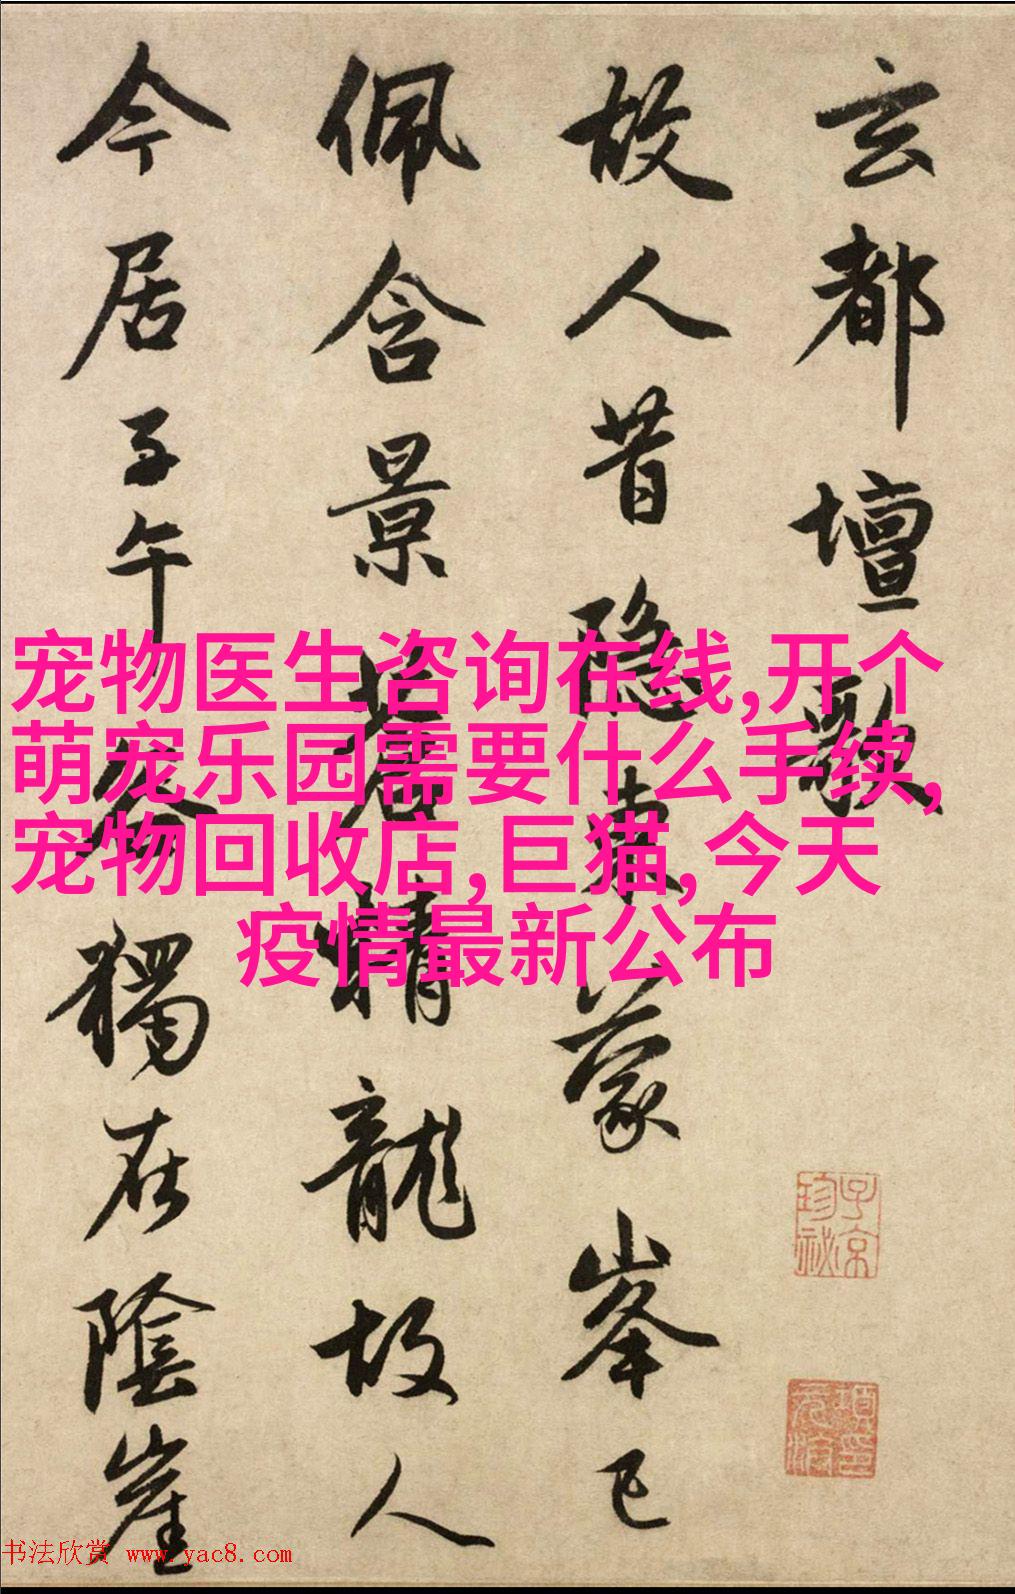 玄都壇歌
故人昔隱東蒙峯已
佩含景蒼精龍故人
今居子午谷獨在陰崖
宠物医生咨询在线,开个
萌宠乐园需要什么手续,
宠物回收店,巨猫,今天
疫情最新公布
子京
珍祕
书法欣赏 www.yac8.com